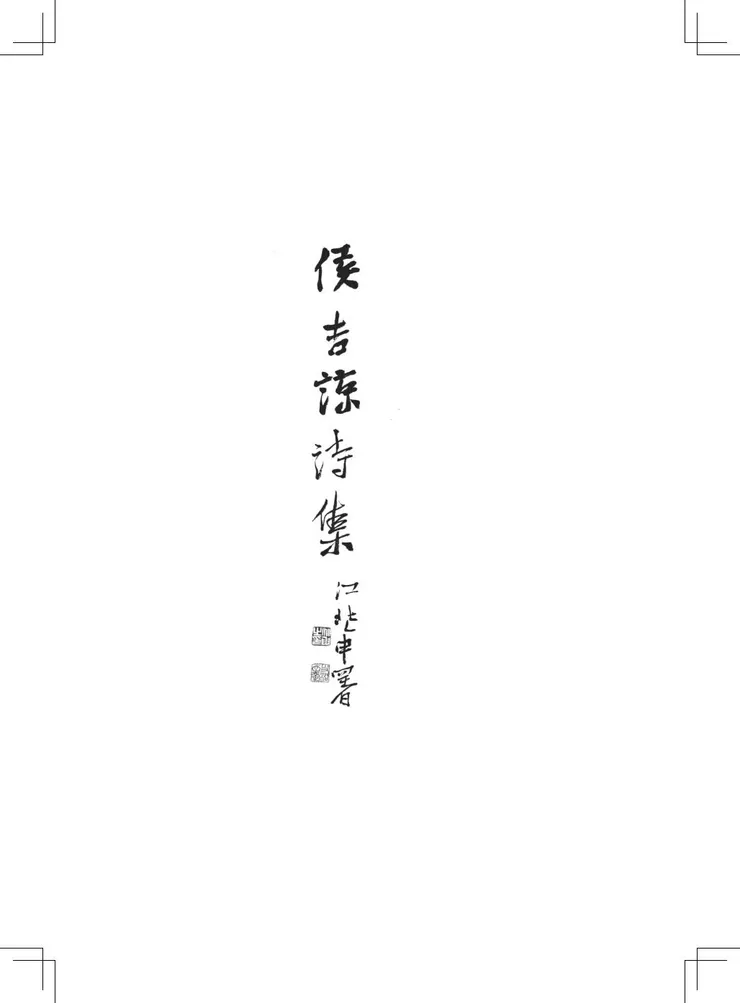 侯吉諒詩集
江兆申署